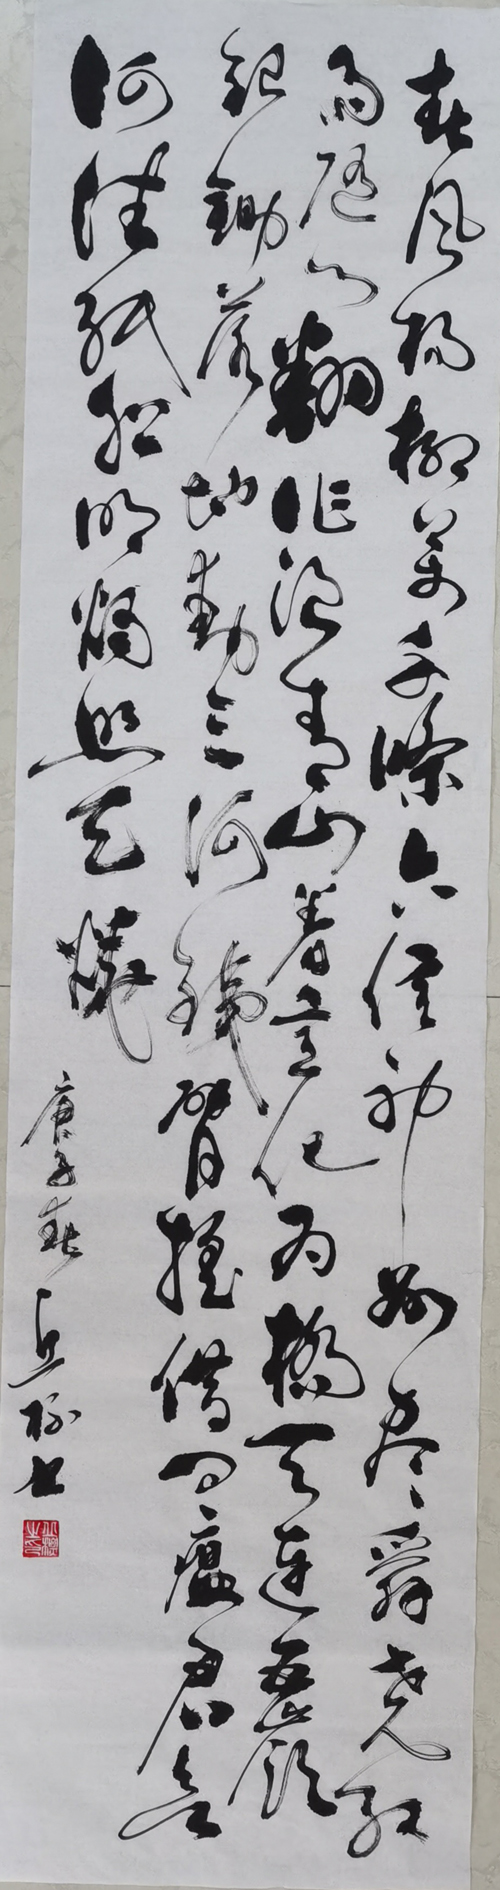 春风杨柳万千條六億神州尽舜尧红
雨随心翻作浪青山着意化为橋天连五嶺
銀鋤落地动三河鐵臂摇借问瘟君欲
何往纸船明燭照天燒
庚子春书